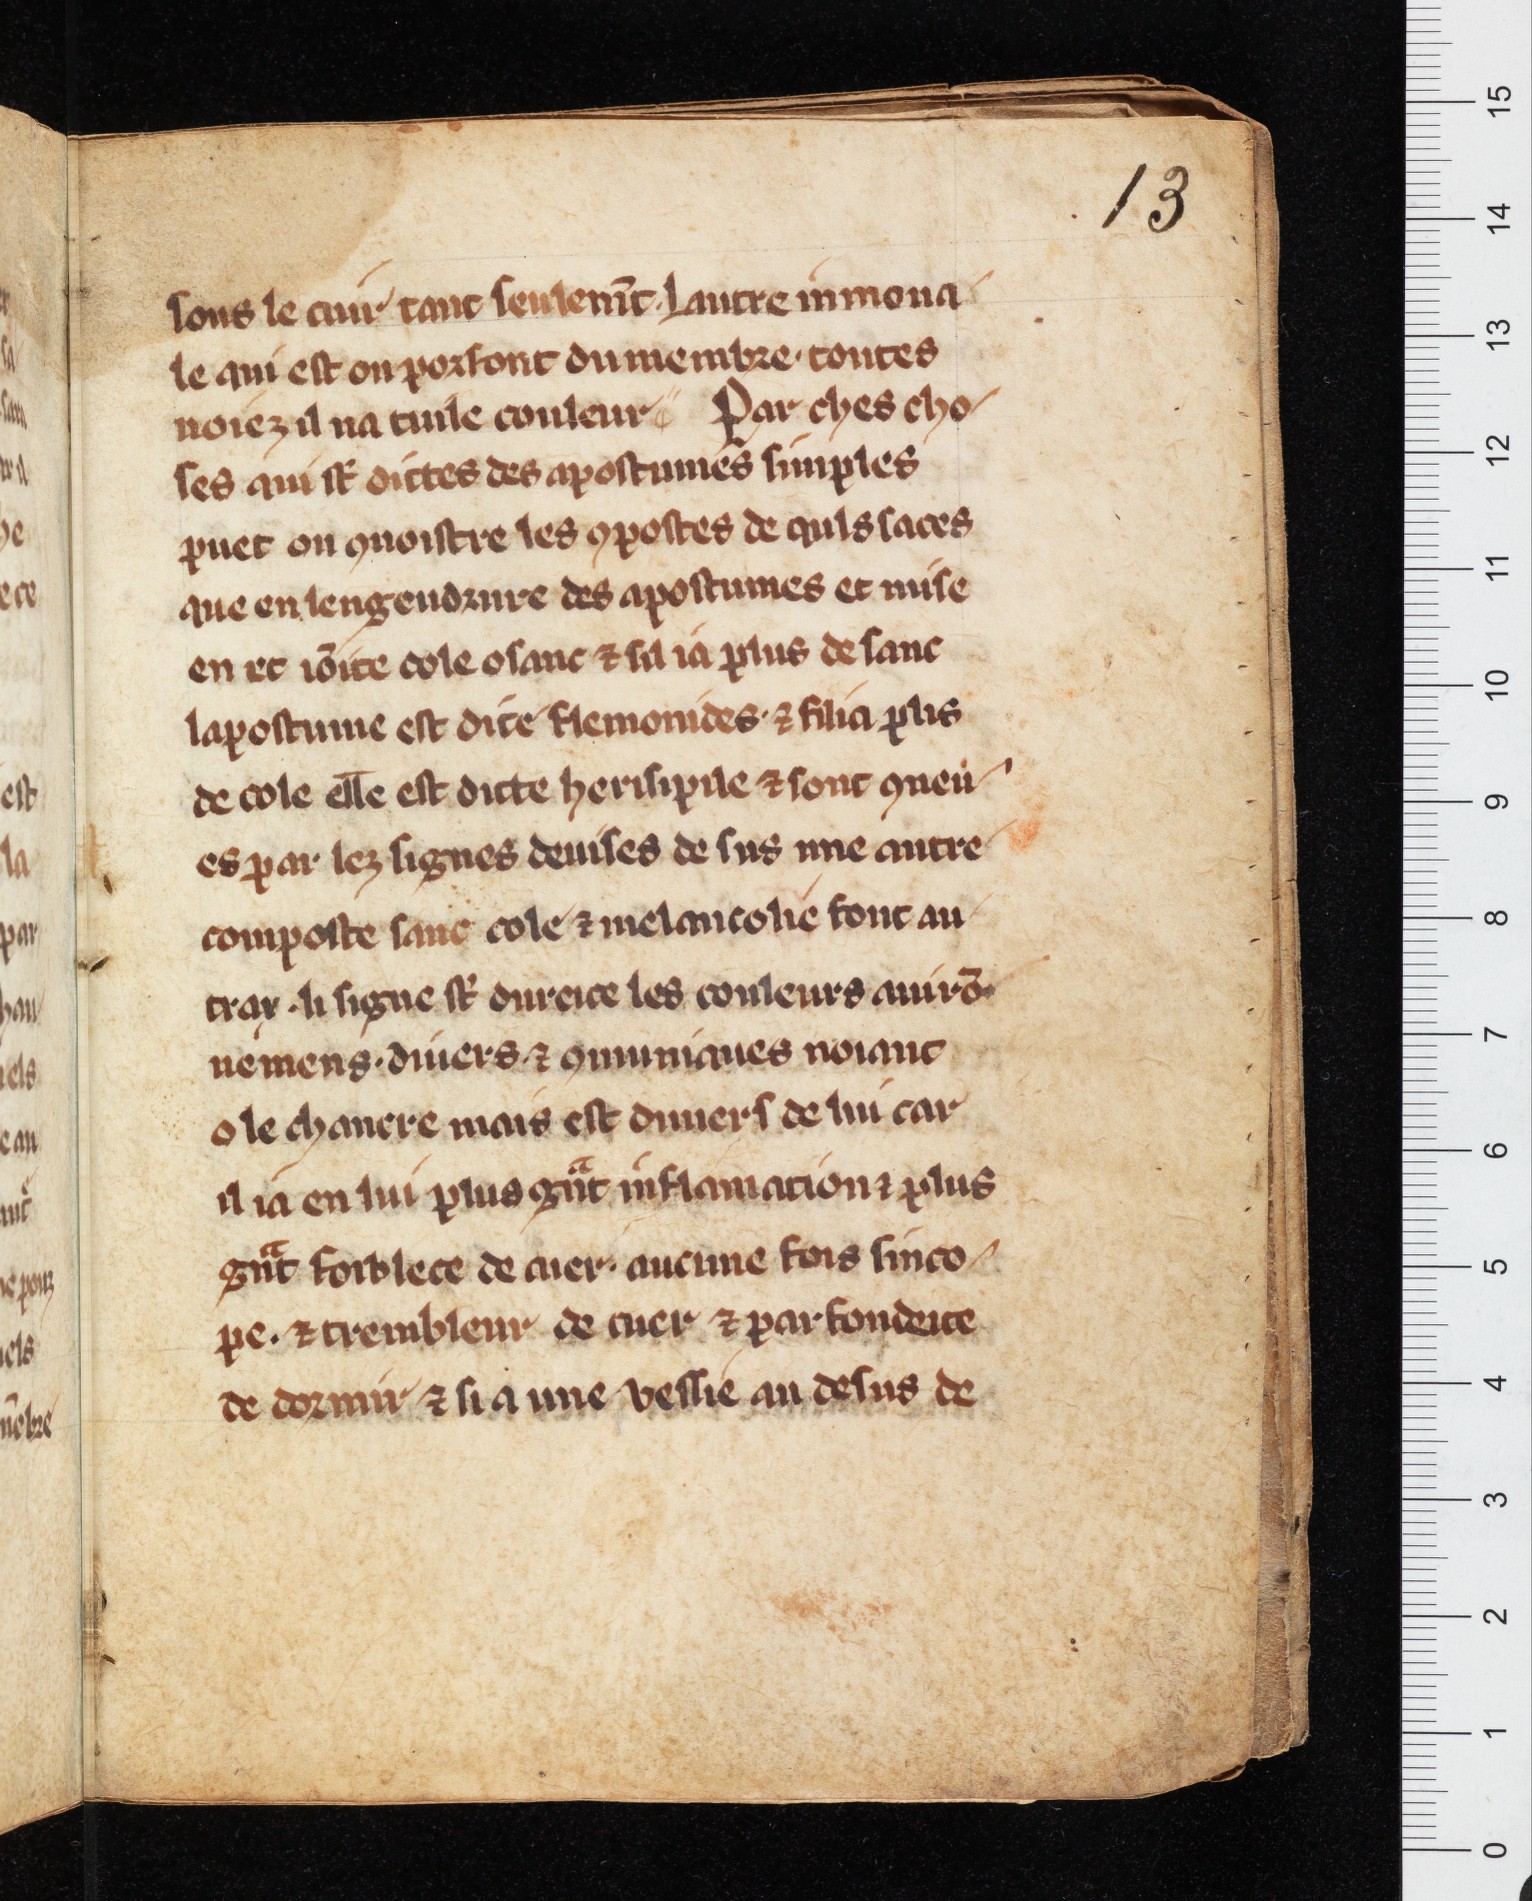 13
sous le cuir tant seulem̃t. Lautre inmona
le qui est ou porfont du membre. toutes
noiez il na tuile couleur Par ches cho
ses qui st̃ dictes des apostumes simples
puet on ꝯnoistre les ꝯpostes de quls saces
que en lengendrure des apostumes et mise
en et iõite cole o sanc ⁊ sil ia plus de sanc
lapostume est dite flemonides. ⁊ silia plis
de cole elle est dicte herisipile ⁊ sont ꝯneu
es par lez signes deuises de sus une autre
composte sanc cole ⁊ melancolie font an
trax. li signe st̃ dureice les couleurs auirõ
nemens. diuers. ⁊ ꝯmuniques noiant
o le chancre mais est diuuers de lui car
il ia en lui plus gñt inflamation ⁊ plus
gñt foiblece de cuer. aucune fois sinco
pe. ⁊ trembleur de cuer ⁊ parfondeice
de dormir ⁊ si a une vessie au desus de
15
14
13
12
11
10
9
8
7
6
5
4
3
2
1
0